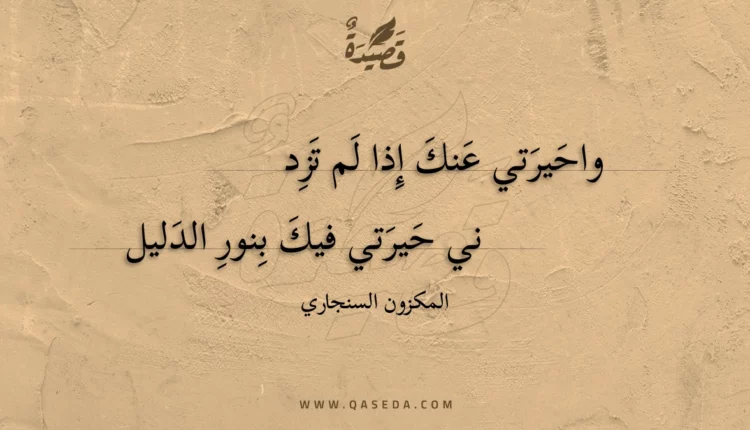 قَصِيدَةٌ
واحَيرَتي عَنكَ إِذا لَم تَزِد
ني حَيرَتي فيكَ بِنورِ الدَليل
المكزون السنجاري
WWW.QASEDA.COM